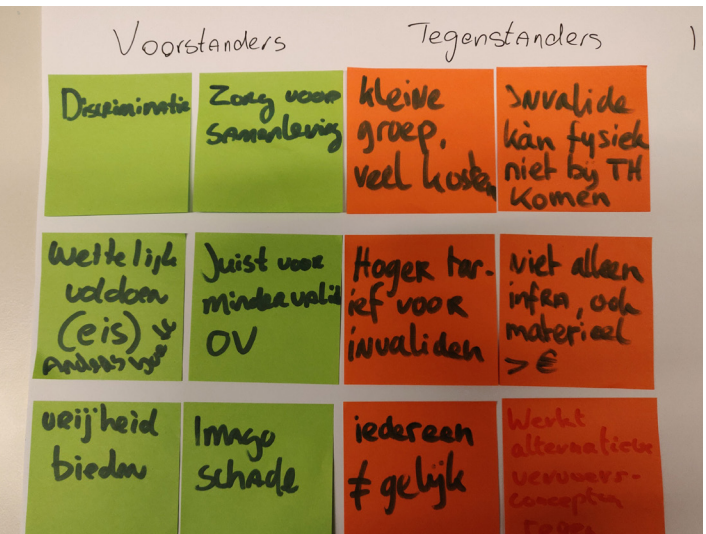 Voorstanders
Tegenstanders
Discriminatie
Zorg voor
samenleving
kleine
groep,
veel kosten
Invalide
kan fysiek
niet bij TH
komen
Wettelijk
voldoen
(eis)
Juist voor
minder valide
OV
Hoger tar-
ief voor
invaliden
Niet alleen
infra, ook
materieel
> €
vrijheid
bieden
Imago
schade
iedereen
≠ gelijk
Werkt
alternatieve
vervoers-
concepten
tegen